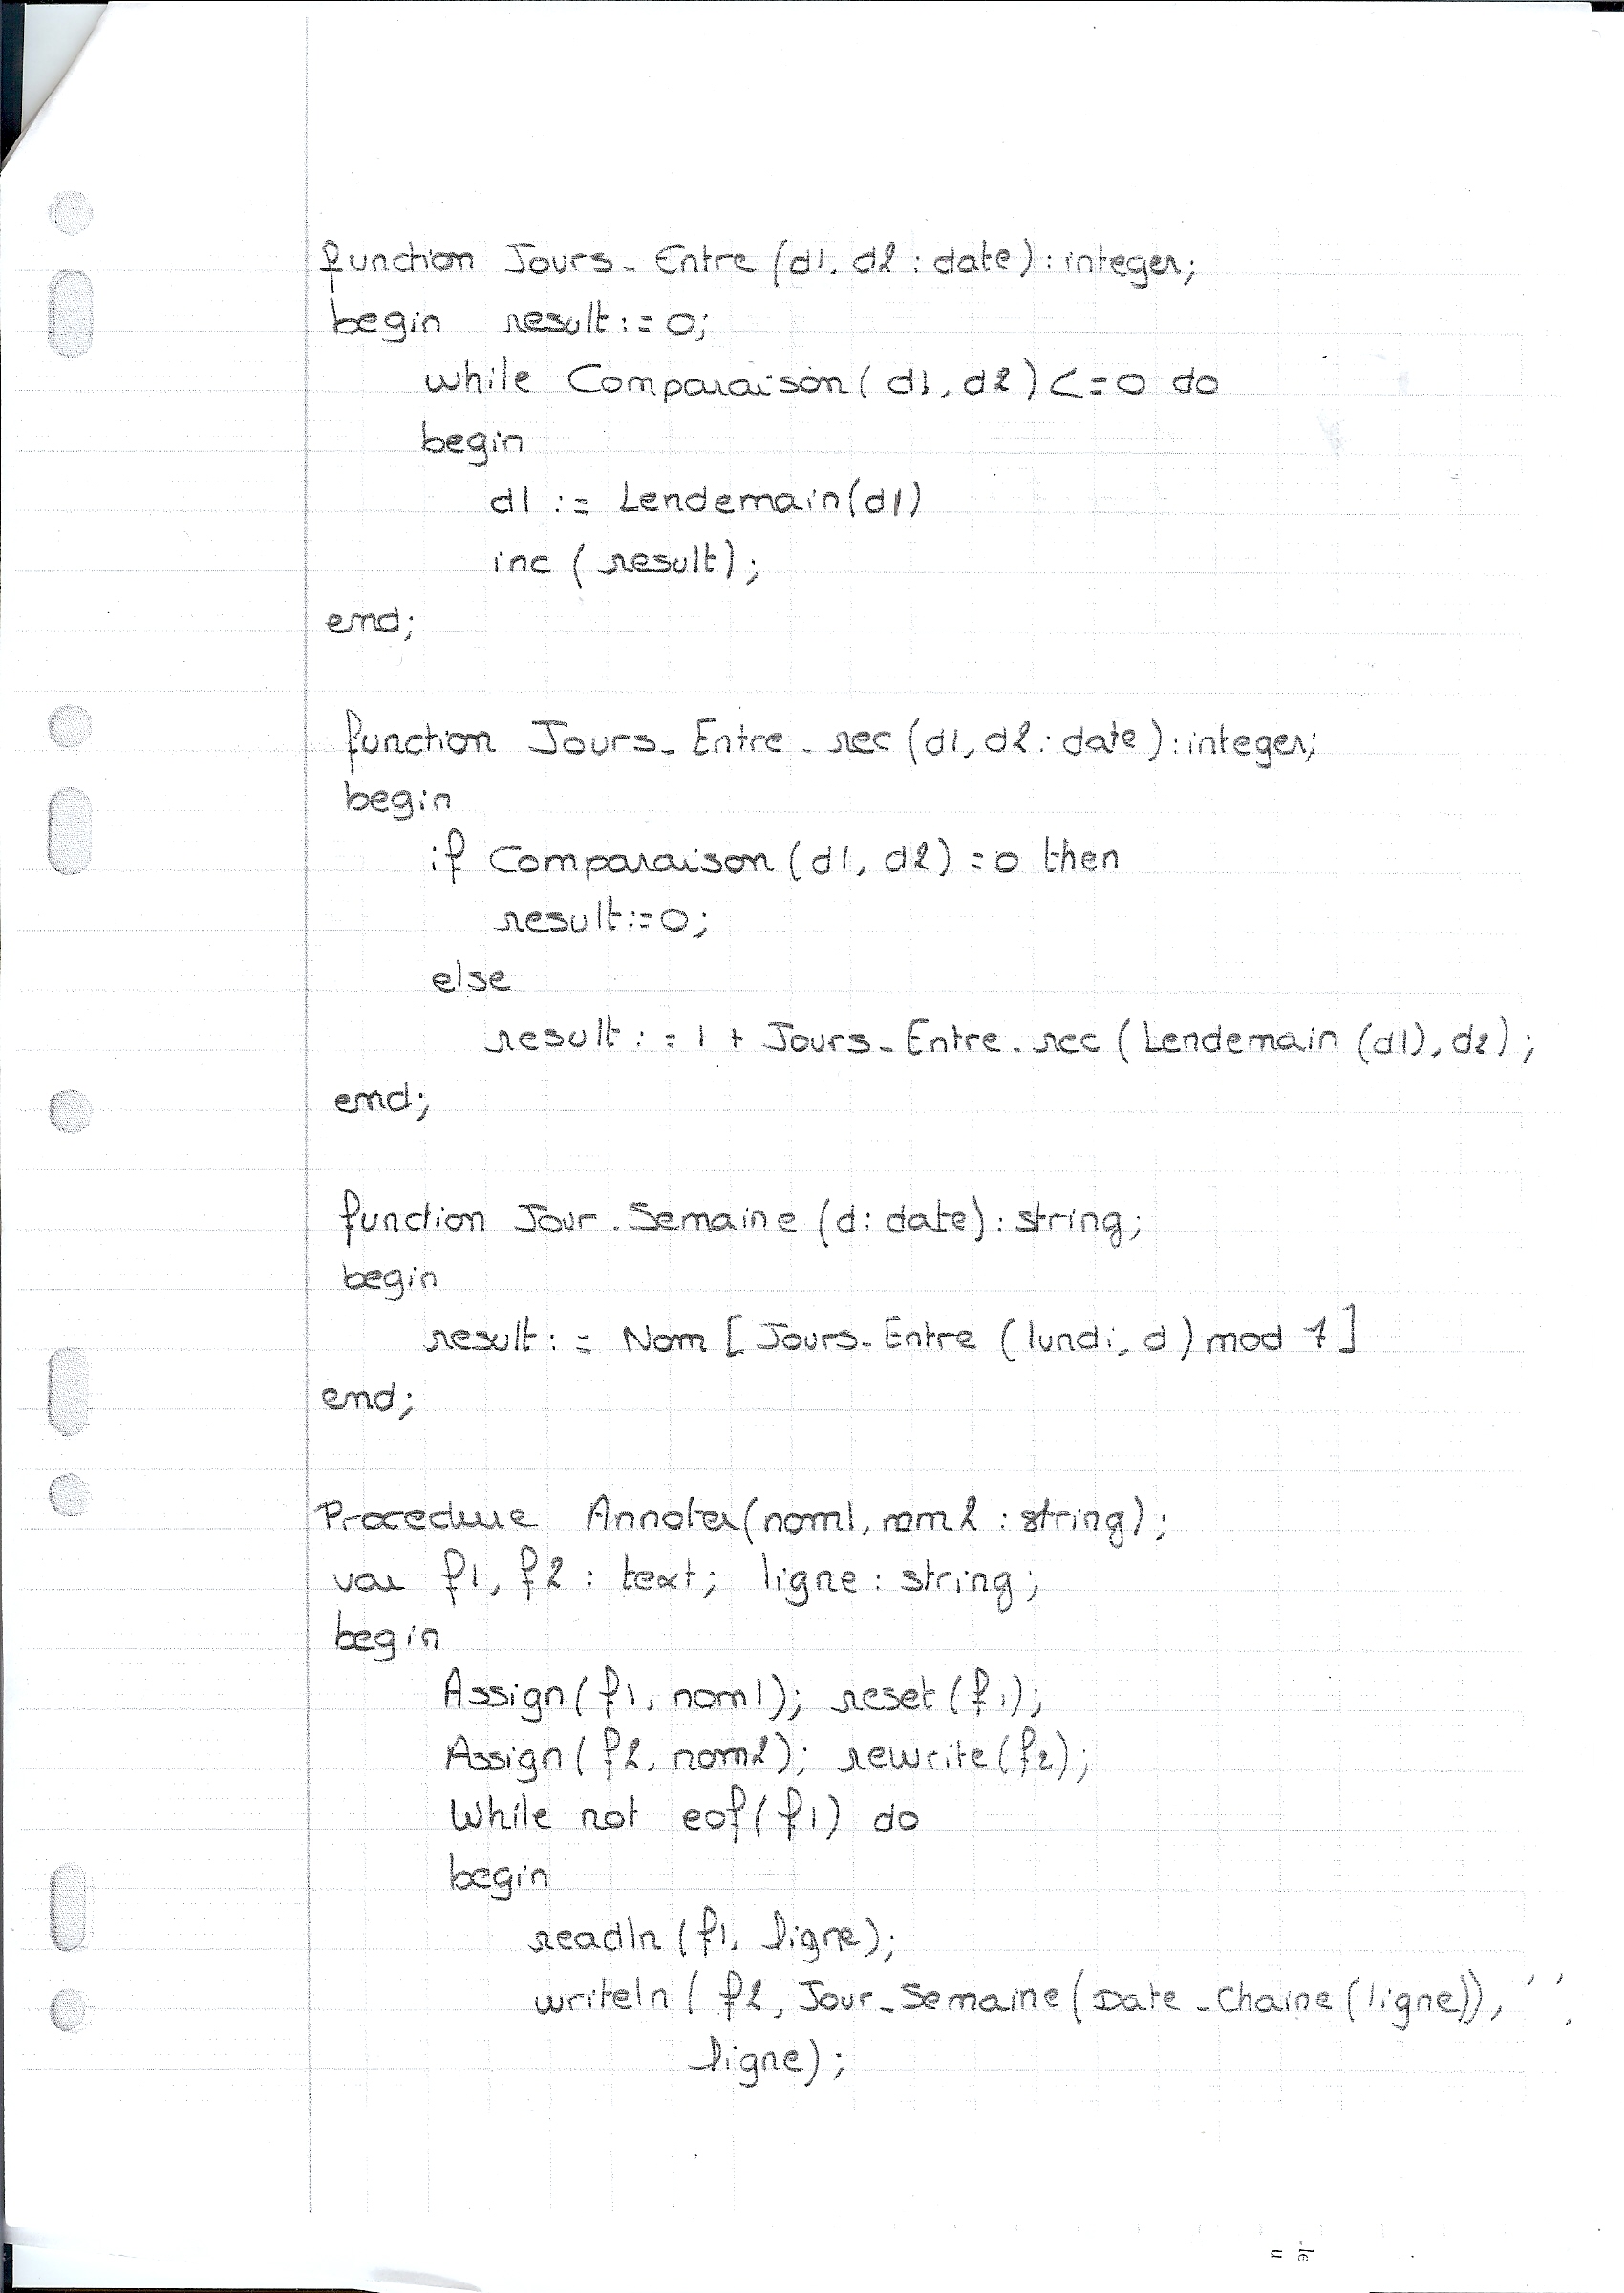 function Jours_Entre (d1, d2 : date) : integer;
begin result := 0;
while Comparaison (d1, d2) <= 0 do
begin
d1 := Lendemain (d1)
inc (result);
end;
function Jours_Entre_rec (d1, d2 : date) : integer;
begin
if Comparaison (d1, d2) = 0 then
result := 0;
else
result := 1 + Jours_Entre_rec (Lendemain (d1), d2);
end;
function Jour_Semaine (d : date) : string;
begin
result := Nom [Jours_Entre (lundi, d) mod 7]
end;
Procedure Annoter (nom1, nom2 : string);
var f1, f2 : text; ligne : string;
begin
Assign (f1, nom1); reset (f1);
Assign (f2, nom2); rewrite (f2);
While not eof (f1) do
begin
readln (f1, ligne);
writeln (f2, Jour_Semaine (Date_Chaine (ligne)), ' ',
ligne);